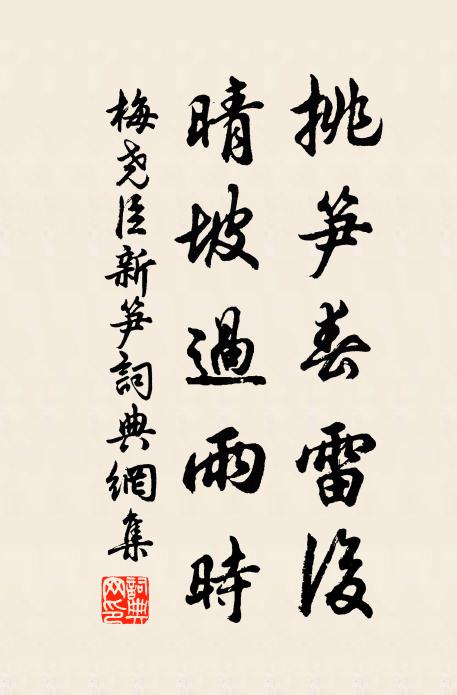 挑笋春雷後
晴坡過雨時
梅尧臣新笋詞典網集
詞典网印